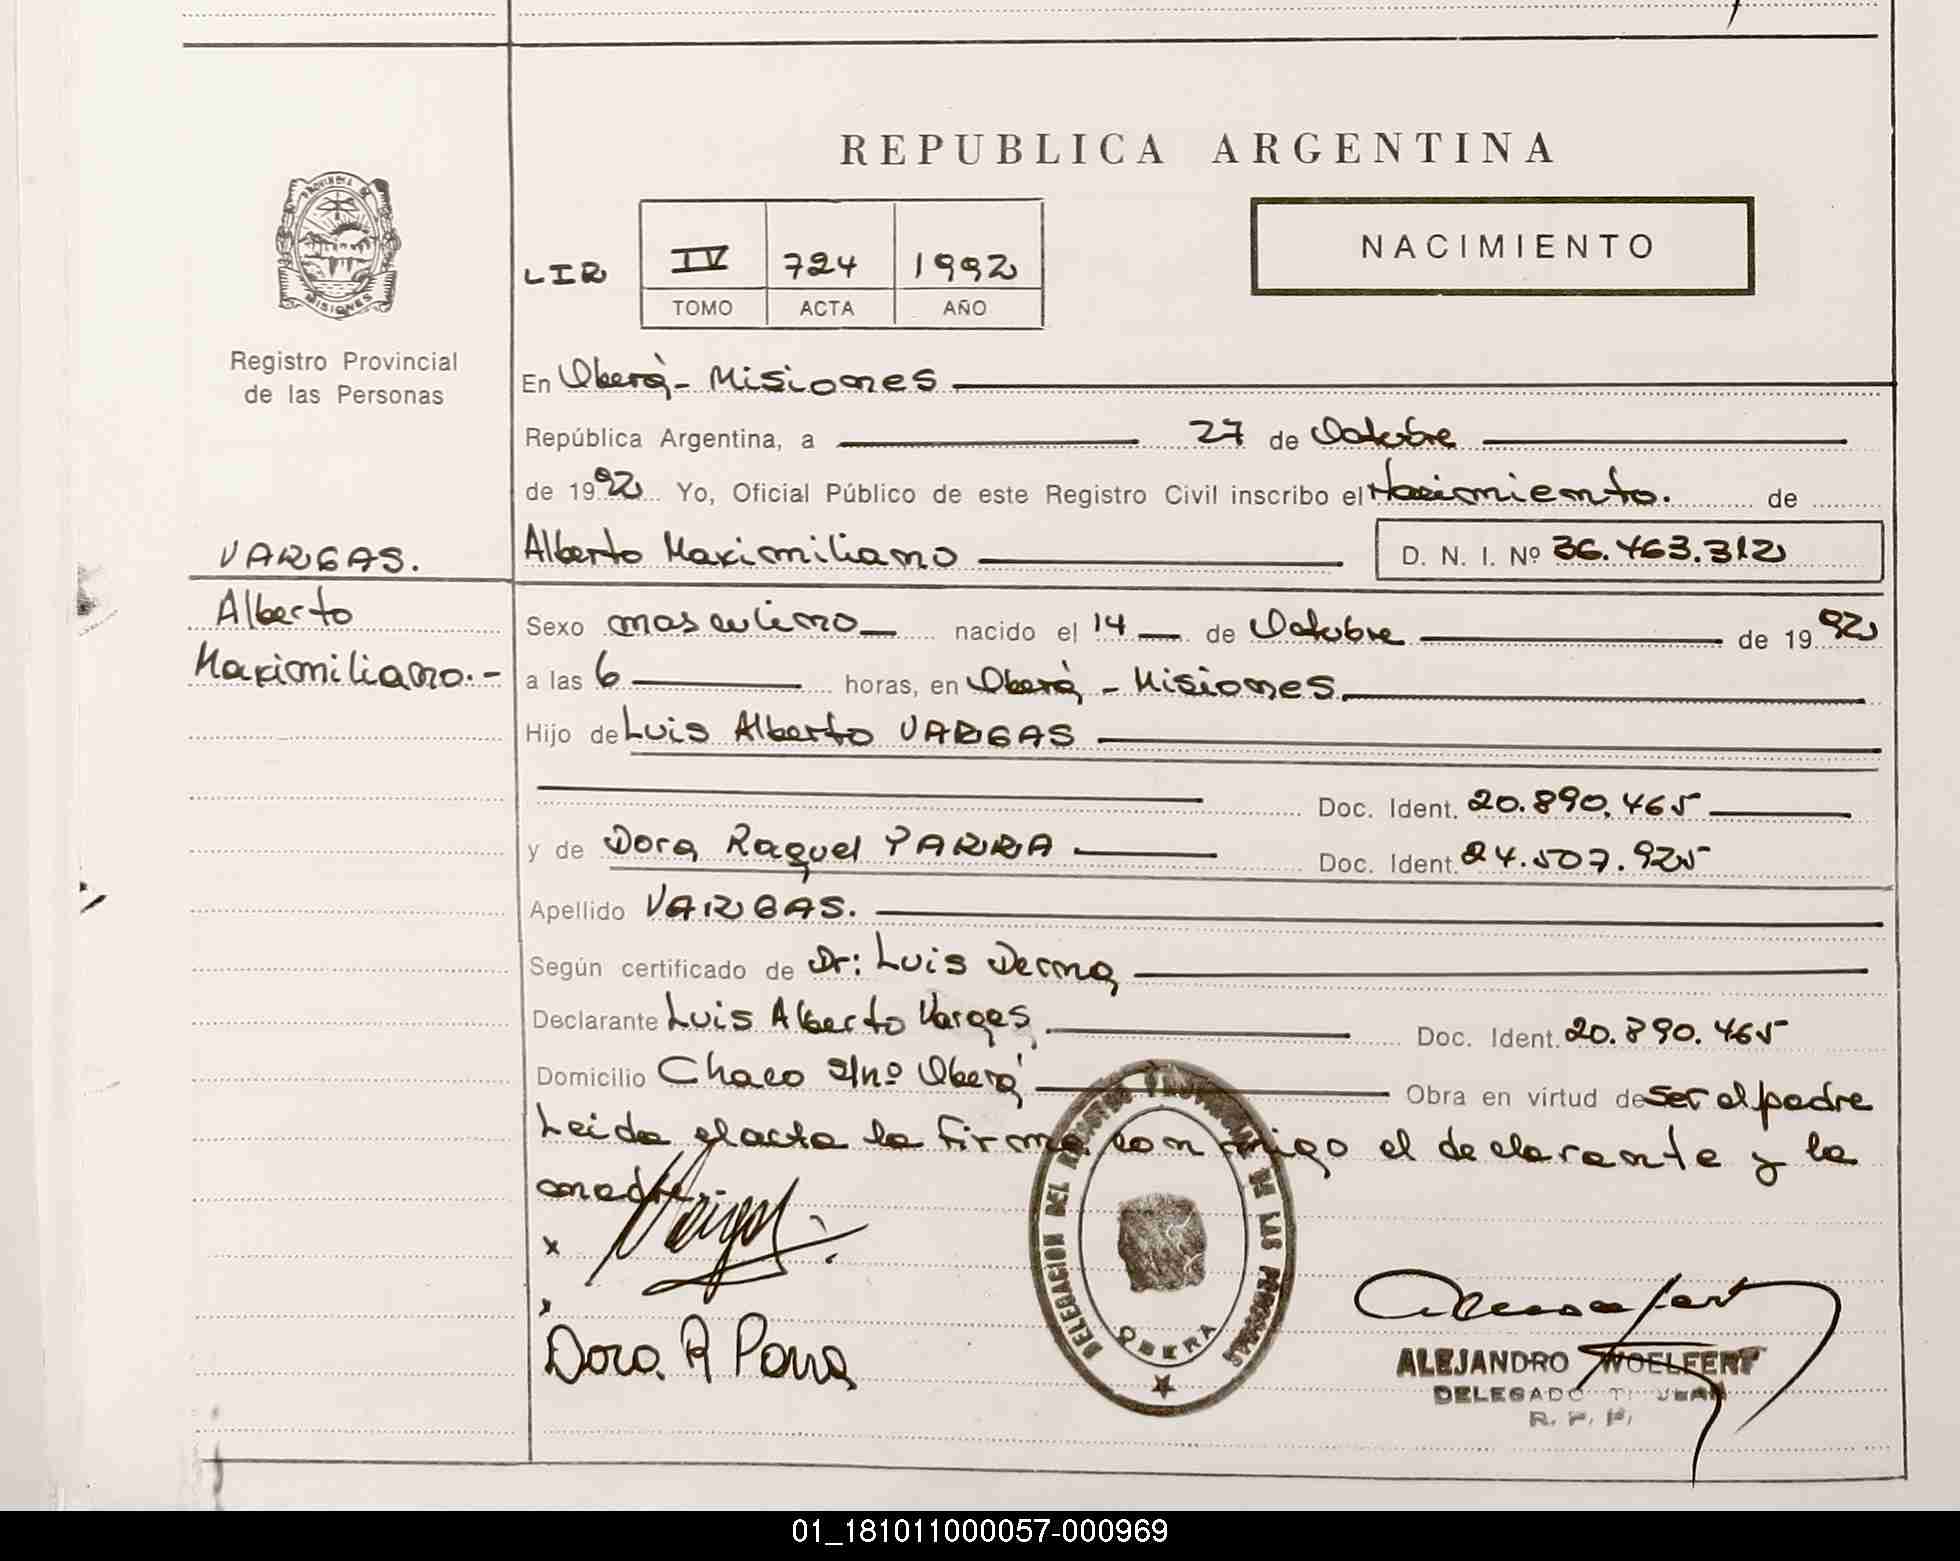 REPUBLICA ARGENTINA
PROVINCIA DE
MISIONES
Registro Provincial
de las Personas
LIR IV 724 1992
TOMO ACTA AÑO
NACIMIENTO
En Oberá - Misiones
República Argentina, a 27 de Octubre
de 1992 Yo, Oficial Público de este Registro Civil inscribo el Nacimiento. de
VARGAS.
Alberto Maximiliano D. N. I. Nº 36.463.312
Alberto
Maximiliano.-
Sexo masculino nacido el 14 de Octubre de 1992
a las 6 horas, en Oberá - Misiones
Hijo de Luis Alberto VARGAS
Doc. Ident. 20.890.465
y de Dora Raquel PARRA Doc. Ident. 24.507.925
Apellido VARGAS.
Según certificado de Dr: Luis Derna
Declarante Luis Alberto Vargas Doc. Ident. 20.890.465
Domicilio Chaco s/nº Oberá Obra en virtud de ser el padre
Leida el acta la firma con migo el declarante y la
madre.-
x Vargas
Dora. R Parra
DELEGACION DEL REGISTRO PROVINCIAL DE LAS PERSONAS
OBERA
ALEJANDRO WOELFERT
DELEGADO TITULAR
R. P. P.
01_181011000057-000969